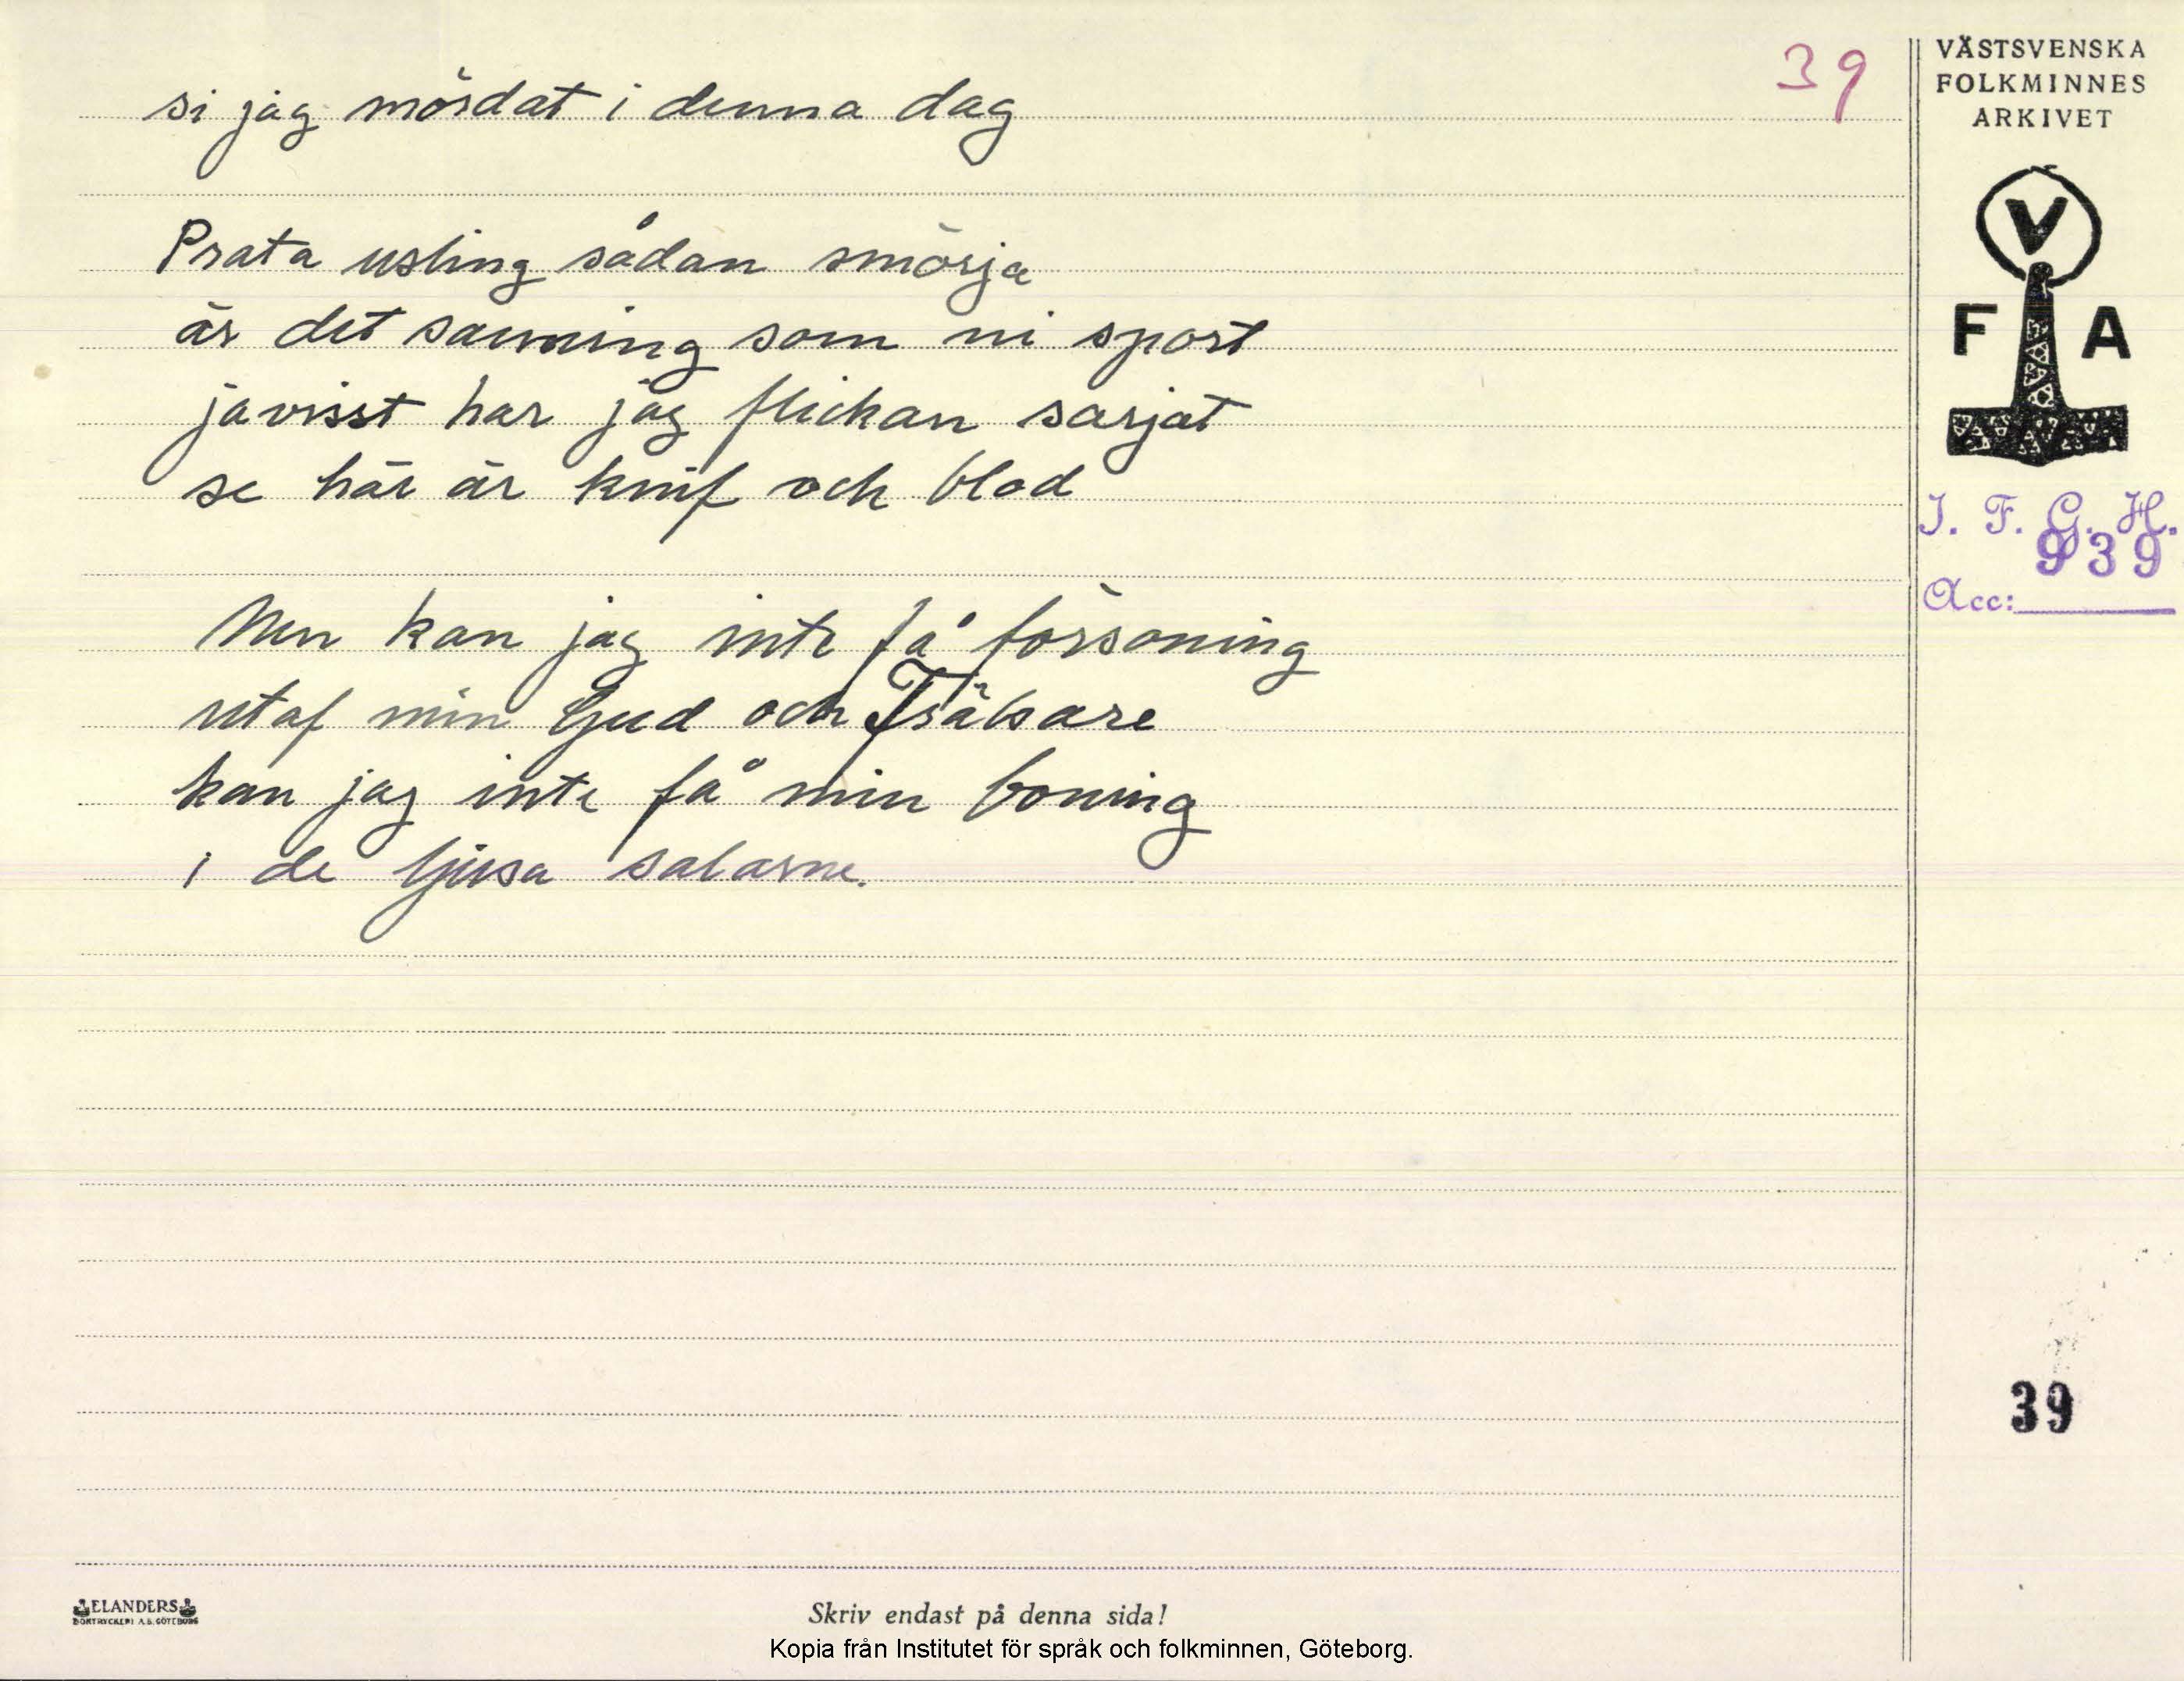 39
si jag mördat i denna dag
Prata usling sådan smörja
är det sanning som ni sport
javisst har jag flickan sarjat
se här är knif och blod
Men kan jag inte få försoning
utaf min Gud och Frälsare
kan jag inte få min boning
i de ljusa salarne.
VÄSTSVENSKA
FOLKMINNES
ARKIVET
V
F A
I. F. G. H.
939
Acc:
39
ELANDERS
BOKTRYCKERI A.B. GÖTEBORG
Skriv endast på denna sida!
Kopia från Institutet för språk och folkminnen, Göteborg.